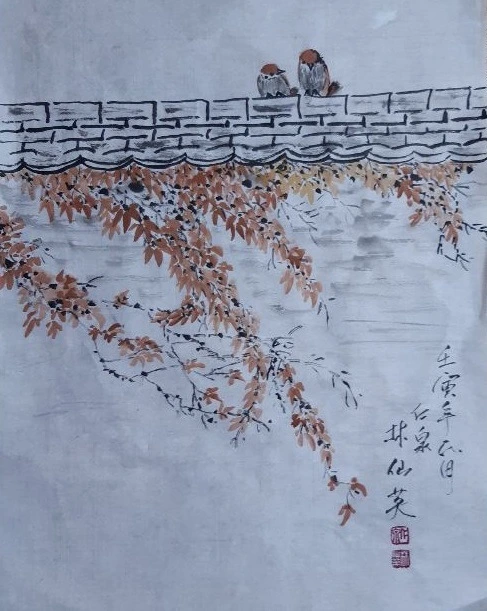 壬寅年正月
石泉
林仙英